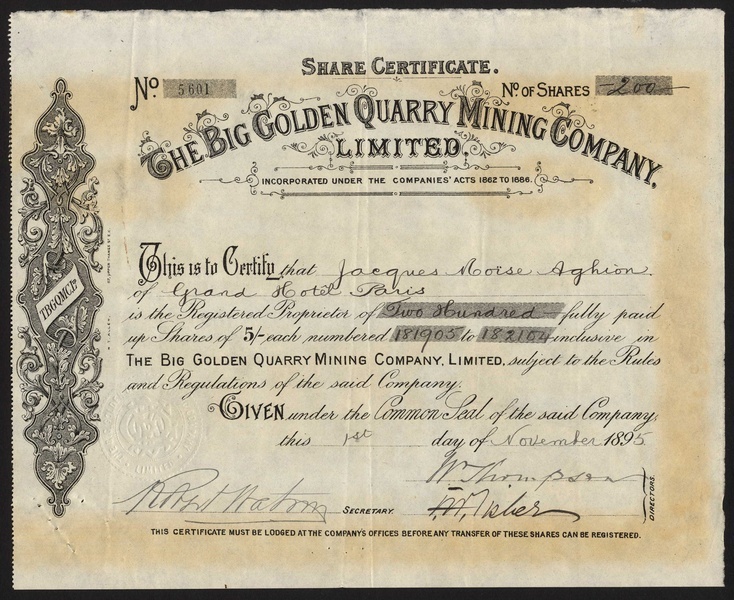 SHARE CERTIFICATE.
No. 5601
No OF SHARES 200
THE BIG GOLDEN QUARRY MINING COMPANY,
LIMITED.
INCORPORATED UNDER THE COMPANIES' ACTS 1862 TO 1886.
TBGQMCLD
This is to Certify that Jacques Moise Aghion.
of Grand Hotel Paris
is the Registered Proprietor of Two Hundred fully paid
up Shares of 5/- each numbered 181905 to 182104 inclusive in
THE BIG GOLDEN QUARRY MINING COMPANY, LIMITED, subject to the Rules
and Regulations of the said Company.
GIVEN under the Common Seal of the said Company,
this 1st day of November 1895
Wm Thompson
Robert Watson SECRETARY.
DIRECTORS.
THIS CERTIFICATE MUST BE LODGED AT THE COMPANY'S OFFICES BEFORE ANY TRANSFER OF THESE SHARES CAN BE REGISTERED.